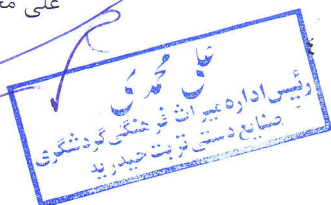 علی مح
علی محمدی
رئیس اداره میراث فرهنگی گردشگری
صنایع دستی تربت حیدریه